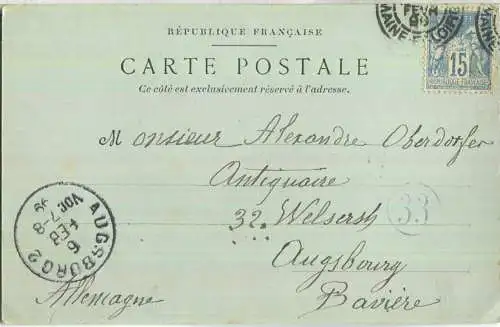 RÉPUBLIQUE FRANÇAISE
FEVR
MAINE-ET-LOIRE
MAINE
15
CARTE POSTALE
Ce côté est exclusivement réservé à l'adresse.
Monsieur Alexandre Oberdorfer
Antiquaire
32. Welsersh
33
Augsbourg
Bavière
Allemagne
AUGSBURG 2
6
FEB
VOR 7-8
99